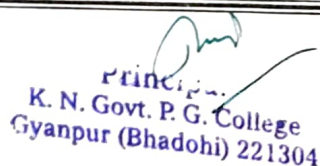 Principal
K. N. Govt. P. G. College
Gyanpur (Bhadohi) 221304